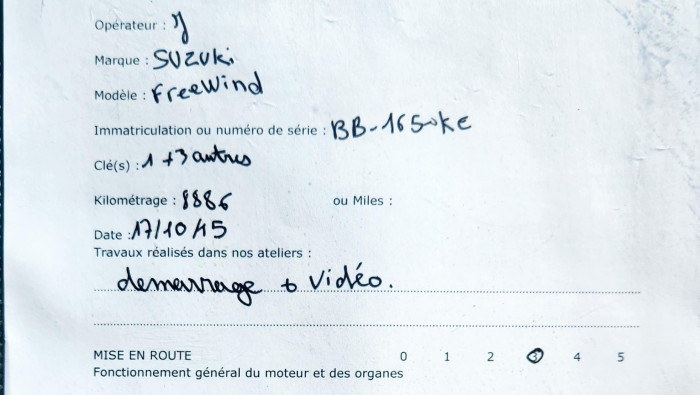 Opérateur : J
Marque : SUZUKi
Modèle : FreeWind
Immatriculation ou numéro de série : BB-165-KE
Clé(s) : 1 + 3 autres
Kilométrage : 8886 ou Miles :
Date : 17/10/15
Travaux réalisés dans nos ateliers :
demarrage + vidéo.
MISE EN ROUTE 0 1 2 3 4 5
Fonctionnement général du moteur et des organes